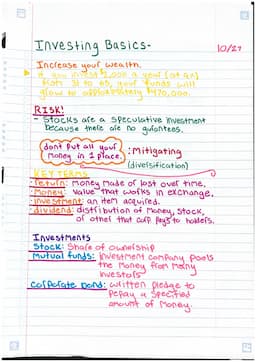 Investing Basics-
10/27
Increase your wealth.
if you invest 2,000 a year (at 8%)
from 31 to 65, your funds will
grow to approximately $470,000.
RISK!
- Stocks are a speculative investment
because there are no gurantees.
dont put all your
money in 1 place. : Mitigating
(diversification)
KEY TERMS
·return: money made of lost over time.
·Money: value that works in exchange.
·investment: an item acquired.
·dividend: distribution of money, stock,
of other that corp pays to holders.
Investments
Stock: Share of ownership
Mutual funds: investment company pools
the money from many
investors
Corporate bond: written pledge to
repay a specified
amount of money.